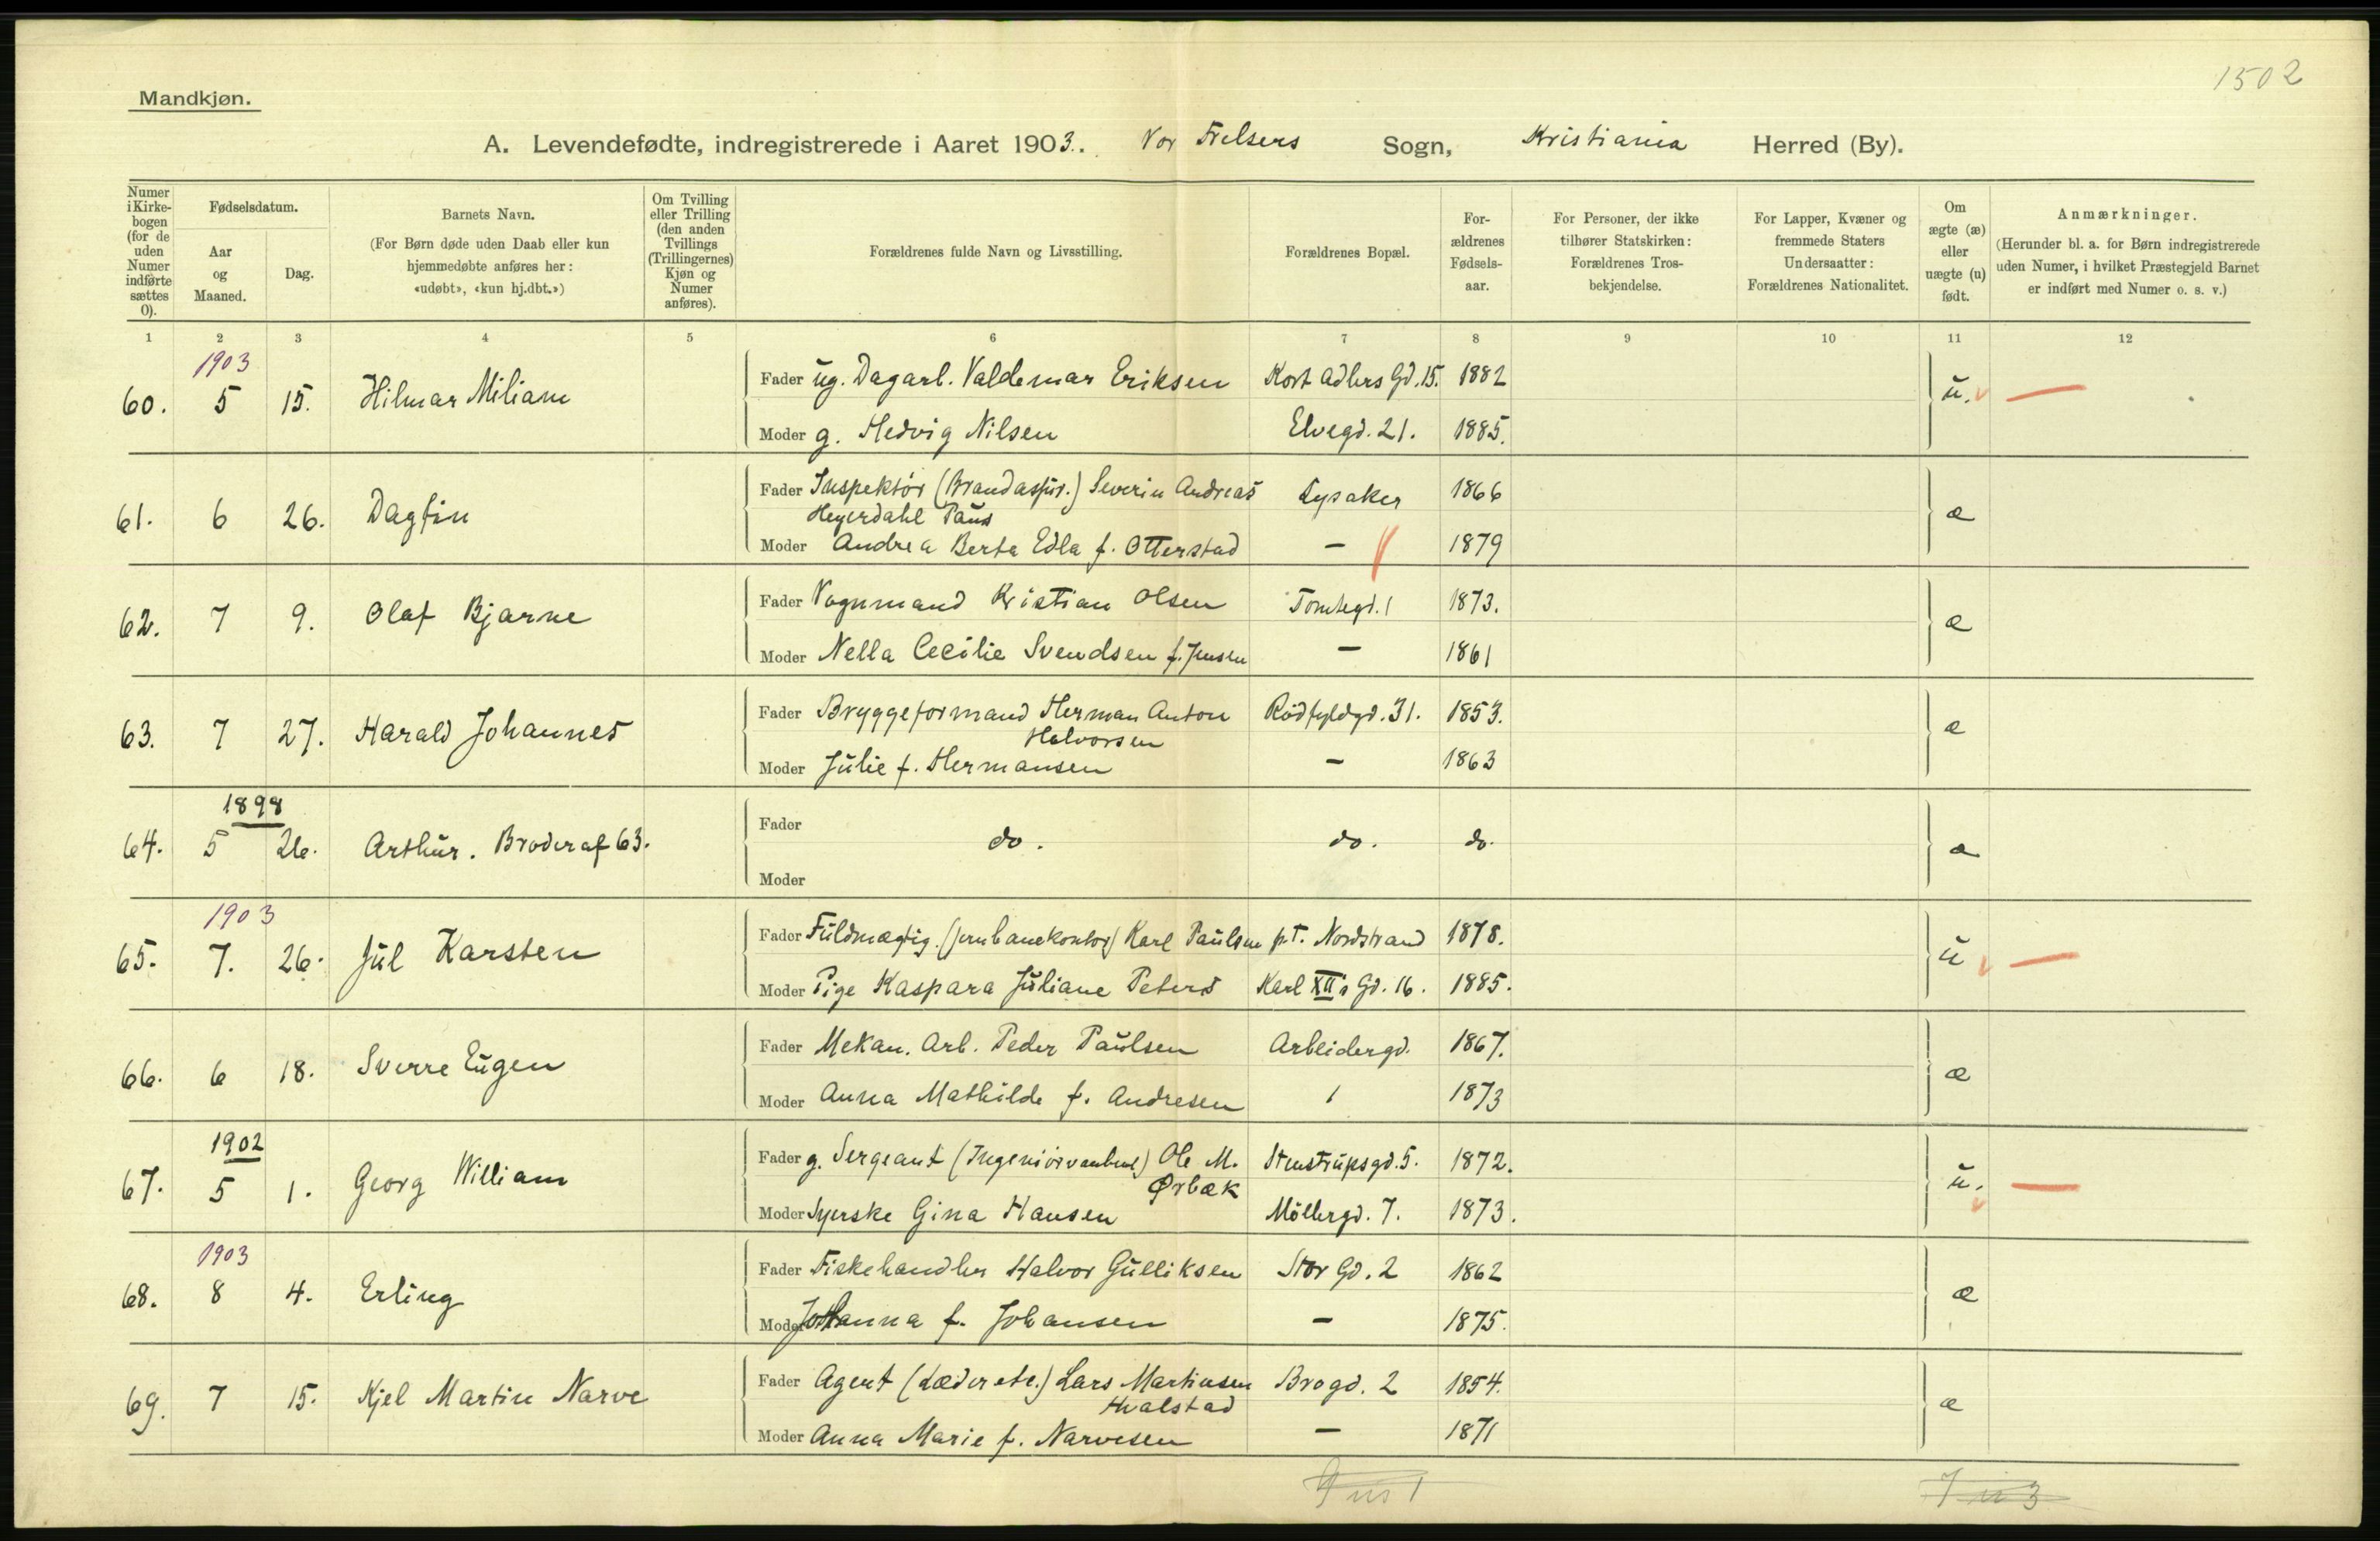 1502
Mandkjøn.
A. Levendefødte, indregistrerede i Aaret 1903. Vor Frelsers Sogn, Kristiania Herred (By).
Numer i Kirkebogen (for de uden Numer indførte sættes 0).
Fødselsdatum.
Aar og Maaned.
Dag.
Barnets Navn.
(For Børn døde uden Daab eller kun hjemmedøbte anføres her: «udøbt», «kun hj.dbt.»)
Om Tvilling eller Trilling (den anden Tvillings (Trillingernes) Kjøn og Numer anføres).
Forældrenes fulde Navn og Livsstilling.
Forældrenes Bopæl.
Forældrenes Fødselsaar.
For Personer, der ikke tilhører Statskirken: Forældrenes Trosbekjendelse.
For Lapper, Kvæner og fremmede Staters Undersaatter: Forældrenes Nationalitet.
Om ægte (æ) eller uægte (u) født.
Anmærkninger.
(Herunder bl. a. for Børn indregistrerede uden Numer, i hvilket Præstegjeld Barnet er indført med Numer o. s. v.)
1 2 3 4 5 6 7 8 9 10 11 12
1903
60. 5 15. Hilmar Miliam
Fader ug. Dagarb. Valdemar Eriksen Kort Adlers Gd. 15. 1882
Moder g. Hedvig Nilsen Elvegd. 21. 1885.
u.
61. 6 26. Dagfin
Fader Inspektør (Brandassur.) Severin Andreas Lysaker 1866
Heyerdahl Paus
Moder Andrea Berta Edla f. Otterstad - 1879
æ
62. 7 9. Olaf Bjarne
Fader Vognmand Kristian Olsen Tomtegd. 1 1873.
Moder Nella Cecilie Svendsen f. Jensen - 1861
æ
63. 7 27. Harald Johannes
Fader Bryggeformand Herman Anton Rødfyldgd. 31. 1853.
Halvorsen
Moder Julie f. Hermansen - 1863
æ
1898
64. 5 26. Arthur. Broder af 63.
Fader
do. do. do.
Moder
æ
1903
65. 7. 26. Jul Karsten
Fader Fuldmægtig. (Jernbanekontor) Karl Paulsen p.t. Nordstrand 1878.
Moder Pige Kaspara Juliane Peters Karl XII's Gd. 16. 1885.
u
66. 6 18. Sverre Eugen
Fader Mekan. Arb. Peder Paulsen Arbeidergd. 1867.
Moder Anna Mathilde f. Andresen 1 1873
æ
1902
67. 5 1. Georg William
Fader g. Sergeant (Ingeniørvaabnet) Ole M. Stenstrupsgd. 5. 1872.
Ørbæk
Moder Syerske Gina Hansen Møllergd. 7. 1873.
u.
1903
68. 8 4. Erling
Fader Fiskehandler Halvor Gulliksen Stor Gd. 2 1862
Moder Johanna f. Johansen - 1875.
æ
69. 7 15. Kjel Martin Narve
Fader Agent (Læder etc.) Lars Martinsen Brogd. 2 1854.
Hvalstad
Moder Anna Marie f. Narvesen - 1871
æ